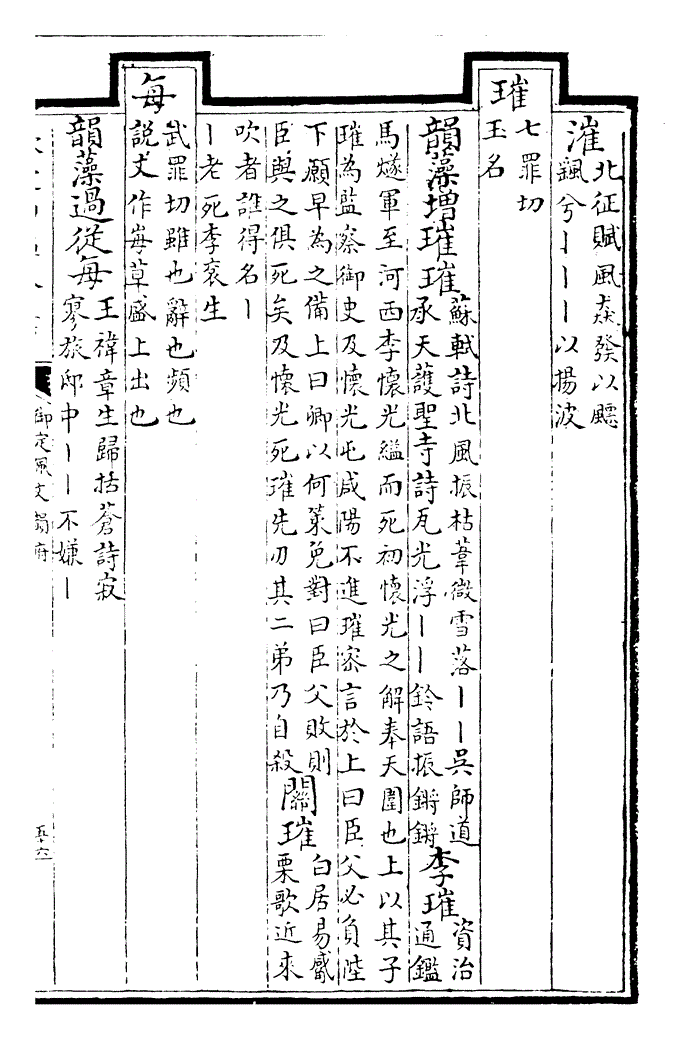 漼
北征賦風猋發以飃
颻兮丨丨丨以揚波
璀
七罪切
玉名
韻藻增璀璀
蘇軾詩北風振枯葦微雪落丨丨吳師道
承天護聖寺詩瓦光浮丨丨鈴語振鏘鏘
李璀
資治
通鑑
馬燧軍至河西李懷光縊而死初懷光之解奉天圍也上以其子
璀為監察御史及懷光屯咸陽不進璀宻言於上曰臣父必負陛
下願早為之備上曰卿以何策免對曰臣父敗則
臣與之俱死矣及懷光死璀先刃其二弟乃自殺
關璀
白居易感
栗歌近來
吹者誰得名丨
丨老死李袞生
每
武罪切雖也辭也頻也
説文作毎草盛上出也
韻藻過從每
王褘章生歸括蒼詩寂
寥旅邸中丨丨不嫌丨
御定佩文韻府
五十六